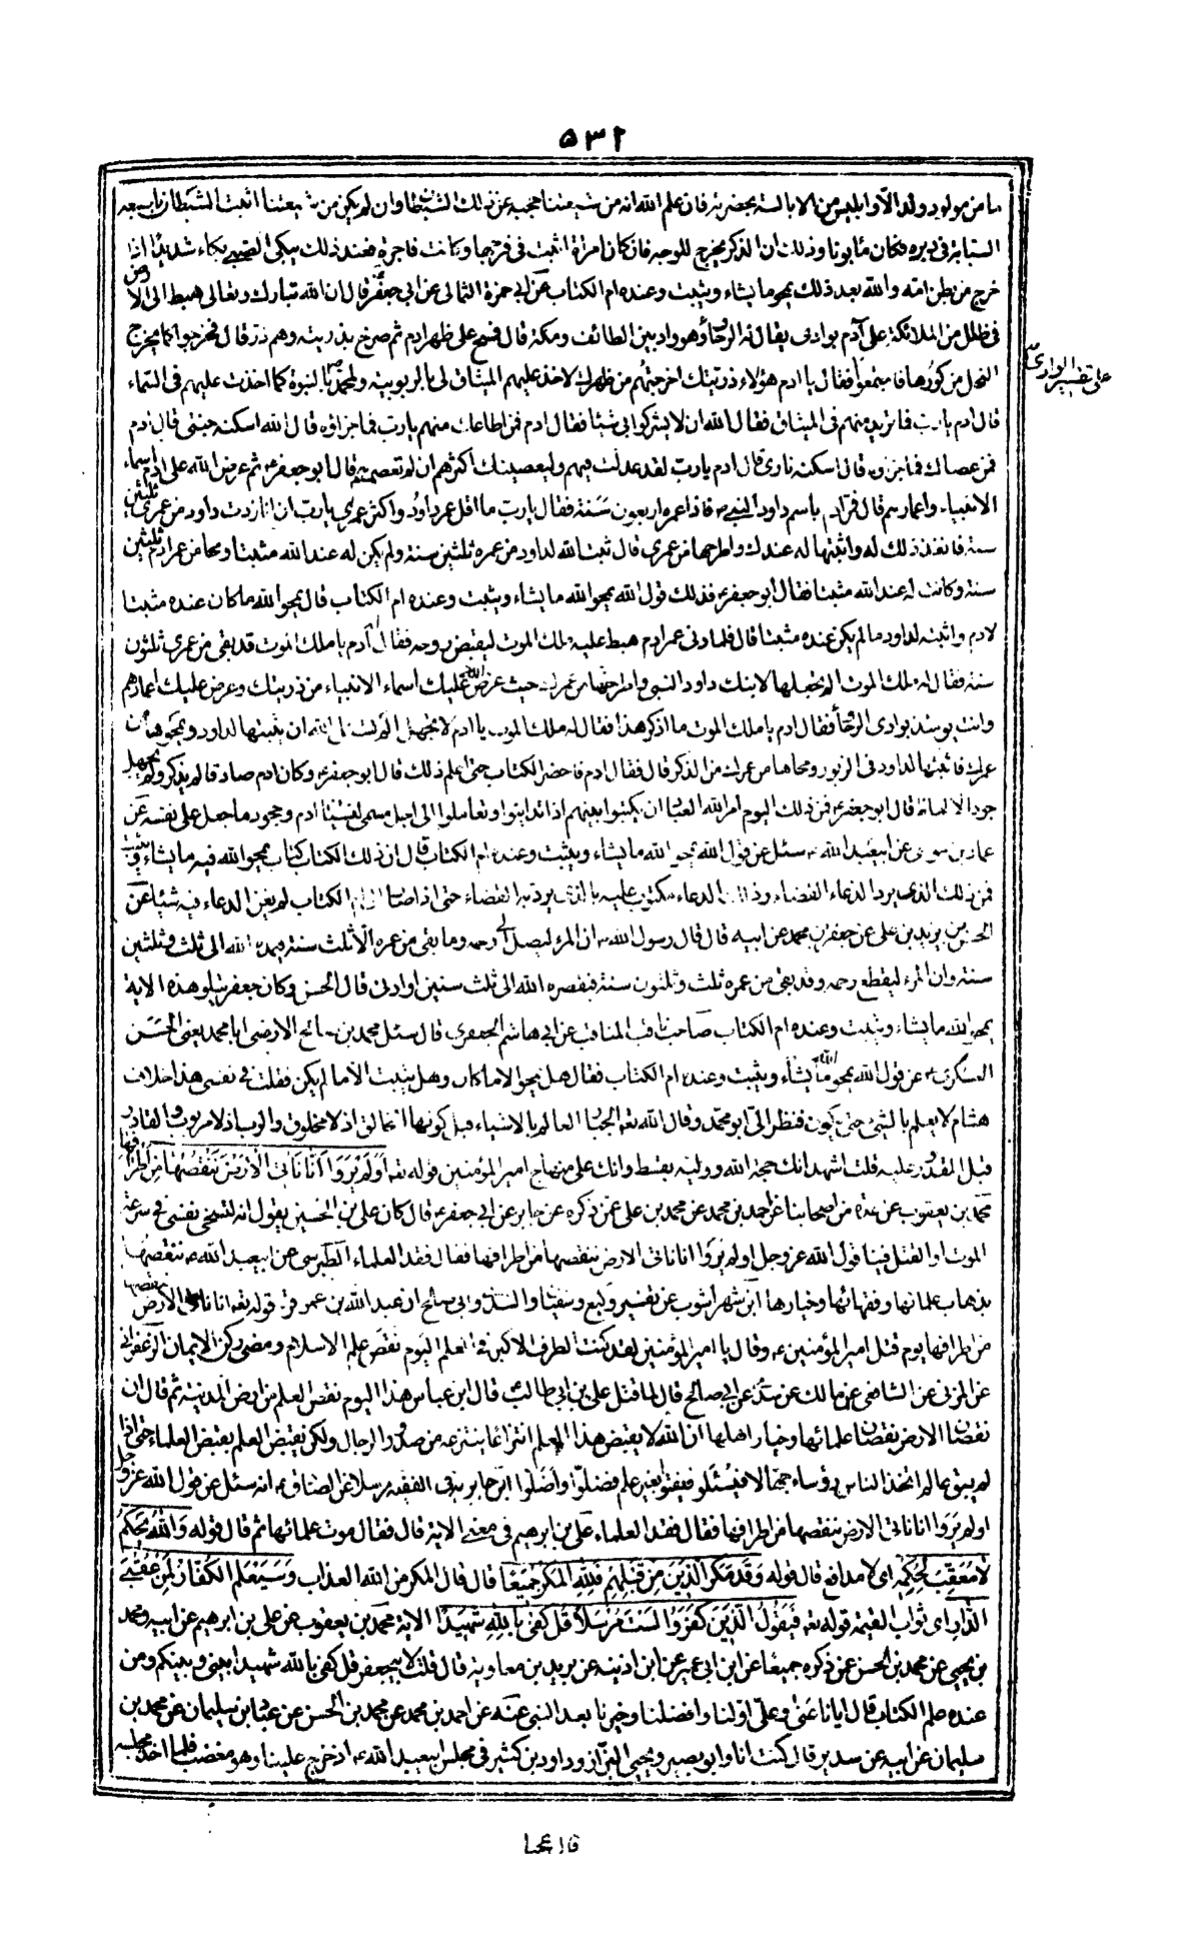 ٥٣٢
ما من مولود ولد الا وابليس من الابالسة بحضرته فان علم الله انه من شيعتنا حجبه عن ذلك الشيطان وان لم يكن من شيعتنا اثبت الشيطان اصبعه
السبابة في دبره فكان مأبونا وذلك ان الذكر يخرج للوجه فان كان امرأة اثبت في فرجها وكانت فاجرة فعند ذلك يبكى الصبى بكاء شديدا اذا
خرج من بطن امه والله بعد ذلك يمحو ما يشاء ويثبت وعنده ام الكتاب عن ابى حمزة الثمالى عن ابى جعفر قال ان الله تبارك وتعالى هبط الى الارض
فى ظلل من الملائكة على آدم بوادى يقال له الروحاء وهو واد بين الطائف ومكة قال فمسح على ظهر ادم ثم صرخ بذريته وهم ذر قال فخرجوا كما يخرج
النحل من كورها فاجتمعوا فقال يا ادم هؤلاء ذريتك اخرجتهم من ظهرك لاخذ عليهم الميثاق لى بالربوبية ولمحمد بالنبوة كما اخذت عليهم فى السماء
على تفسير الوادى
قال ادم يا رب فما تريد منهم فى الميثاق فقال الله ان لا يشركوا بى شيئا فقال ادم فمن اطاعك منهم يا رب فما جزاؤه قال الله اسكنه جنتى قال ادم
فمن عصاك فما جزاؤه قال اسكنه نارى قال ادم يا رب لقد عدلت فيهم وليعصينك اكثرهم ان لم تعصمهم قال ابو جعفر ثم عرض الله على ادم اسماء
الانبياء واعمارهم قال فمر ادم باسم داود النبى فاذا عمره اربعون سنة فقال يا رب ما اقل عمر داود واكثر عمرى يا رب ان انا زدت داود من عمرى ثلثين
سنة فانفذ ذلك له واثبتها له عندك واطرحها من عمرى قال ثبت الله لداود من عمره ثلثين سنة ولم يكن له عند الله مثبتا ومحا من عمر ادم ثلثين
سنة وكانت له عند الله مثبتا فقال ابو جعفر فذلك قول الله يمحو الله ما يشاء ويثبت وعنده ام الكتاب قال يمحو الله ما كان عنده مثبتا
لادم واثبته لداود ما لم يكن عنده مثبتا قال فلما دنى عمر ادم هبط عليه ملك الموت ليقبض روحه فقال له آدم يا ملك الموت قد بقى من عمرى ثلثون
سنة فقال له ملك الموت الم تجعلها لابنك داود النبى واطرحتها من عمرك حيث عرض الله عليك اسماء الانبياء من ذريتك وعرض عليك اعمارهم
وانت يومئذ بوادى الروحاء فقال ادم يا ملك الموت ما اذكر هذا فقال له ملك الموت يا ادم لا تجهل الم تسئل الله ان يثبتها لداود ويمحوها من
عمرك فاثبتها لداود فى الزبور ومحاها من عمرك من الذكر قال فقال ادم فاحضر الكتاب حتى اعلم ذلك قال ابو جعفر وكان ادم صادقا لم يذكر ولم يجهل
قال ابو جعفر فمن ذلك اليوم امر الله العباد ان يكتبوا بينهم اذا تداينوا وتعاملوا الى اجل مسمى لنسيان ادم وجحود ما جعل على نفسه عن
عمار بن موسى عن ابيعبد الله سئل عن قول الله يمحو الله ما يشاء ويثبت وعنده ام الكتاب قال ان ذلك الكتاب كتاب يمحو الله فيه ما يشاء ويثبت
فمن ذلك الذى يرد الدعاء القضاء وذلك الدعاء مكتوب عليه الذى يرد به القضاء حتى اذا صار الى ام الكتاب لم يغن الدعاء فيه شيئا عن
الحسين بن يزيد بن على عن جعفر بن محمد عن ابيه قال قال رسول الله ان المرء ليصل رحمه وما بقى من عمره الا ثلث سنة فيمده الله الى ثلث وثلثين
سنة وان المرء ليقطع رحمه وقد بقى من عمره ثلث وثلثون سنة فيقصره الله الى ثلث سنين او ادنى قال الحسن وكان جعفر يتلو هذه الاية
يمحو الله ما يشاء ويثبت وعنده ام الكتاب صاحب ثاقب المناقب عن ابى هاشم الجعفرى قال سئل محمد بن صالح الارضى ابا محمد يعنى الحسن
العسكرى عن قول الله يمحو الله ما يشاء ويثبت وعنده ام الكتاب فقال هل يمحو الا ما كان وهل يثبت الا ما لم يكن فقلت فى نفسى هذا خلاف
هشام لا يعلم بالشىء حتى يكون فنظر الى ابو محمد وقال الله تعالى الجبار العالم بالاشياء قبل كونها الخالق اذ لا مخلوق والرب اذ لا مربوب والقادر
قبل المقدور عليه قلت اشهد انك حجة الله ووليه بقسط وانك على منهاج امير المؤمنين قوله تعالى اَوَلَمْ يَرَوْا اَنَّا نَأتِى الْاَرْضَ نَنْقُصُهَا مِنْ اَطْرافِها
محمد بن يعقوب عن عدة من اصحابنا عن احمد بن محمد عن محمد بن على عمن ذكره عن جابر عن ابى جعفر قال كان على بن الحسين يقول انه لتسخى نفسى فى سرعة
الموت او القتل فينا قول الله عز وجل اولم يروا انا ناتى الارض ننقصها من اطرافها فقال فقد العلماء الطبرسى عن ابيعبد الله ننقصها
بذهاب علمائها وفقهائها وخيارها ابن شهر اشوب عن تفسير وكيع وسفيان والسدى وابى صالح ان عبد الله بن عمر قرء قوله تعالى انا ناتى الارض ننقصها
من اطرافها يوم قتل امير المؤمنين وقال يا امير المؤمنين لقد كنت الطرف الاكبر فى العلم اليوم نقص علم الاسلام ومضى ركن الايمان الزعفرانى
عن المزنى عن الشافعى عن مالك عن سدى عن ابى صالح قال لما قتل على بن ابى طالب قال ابن عباس هذا اليوم نقص العلم من ارض المدينة ثم قال ان
نقصان الارض نقصان علمائها وخيار اهلها ان الله لا يقبض هذا العلم انتزاعا ينتزعه من صدور الرجال ولكن يقبض العلم بقبض العلماء حتى اذا
لم يبق عالم اتخذ الناس رؤساء جهالا فيسئلوا فيفتوا بغير علم فضلوا واضلوا ابن بابويه فى الفقيه مرسلا عن الصادق انه سئل عن قول الله عز وجل
اولم يروا انا ناتى الارض ننقصها من اطرافها فقال فقد العلماء على بن ابرهيم فى معنى الاية قال فقال موت علمائها ثم قال قوله وَاللّٰهُ يَحْكُمُ
لا مُعَقِّبَ لِحُكْمِهِ اى لا مدافع قال قوله وَقَدْ مَكَرَ الَّذِينَ مِنْ قَبْلِهِمْ فَلِلّٰهِ الْمَكْرُ جَمِيعًا قال قال المكر من الله العذاب وَسَيَعْلَمُ الْكُفَّارُ لِمَنْ عُقْبَى
الدَّارِ اى ثواب القيمة قوله تعالى فَيَقُولُ الَّذِينَ كَفَرُوا لَسْتَ مُرْسَلًا قُلْ كَفٰى بِاللّٰهِ شَهِيدًا الاية محمد بن يعقوب عن على بن ابرهيم عن ابيه ومحمد
بن يحيى عن محمد بن الحسن عمن ذكره جميعا عن ابن ابى عمير عن ابن اذينه عن بريد بن معاوية قال قلت لابيجعفر قل كفى بالله شهيدا بينى وبينكم ومن
عنده علم الكتاب قال ايانا عنى وعلى اولنا وافضلنا وخيرنا بعد النبى عنه عن احمد بن محمد عن محمد بن الحسن عن عباد بن سليمان عن محمد بن
سليمان عن ابيه عن سدير قال كنت انا وابو بصير ويحيى البزاز وداود بن كثير فى مجلس ابيعبد الله اذ خرج علينا وهو مغضب فلما اخذ مجلسه
قال يا عجبا